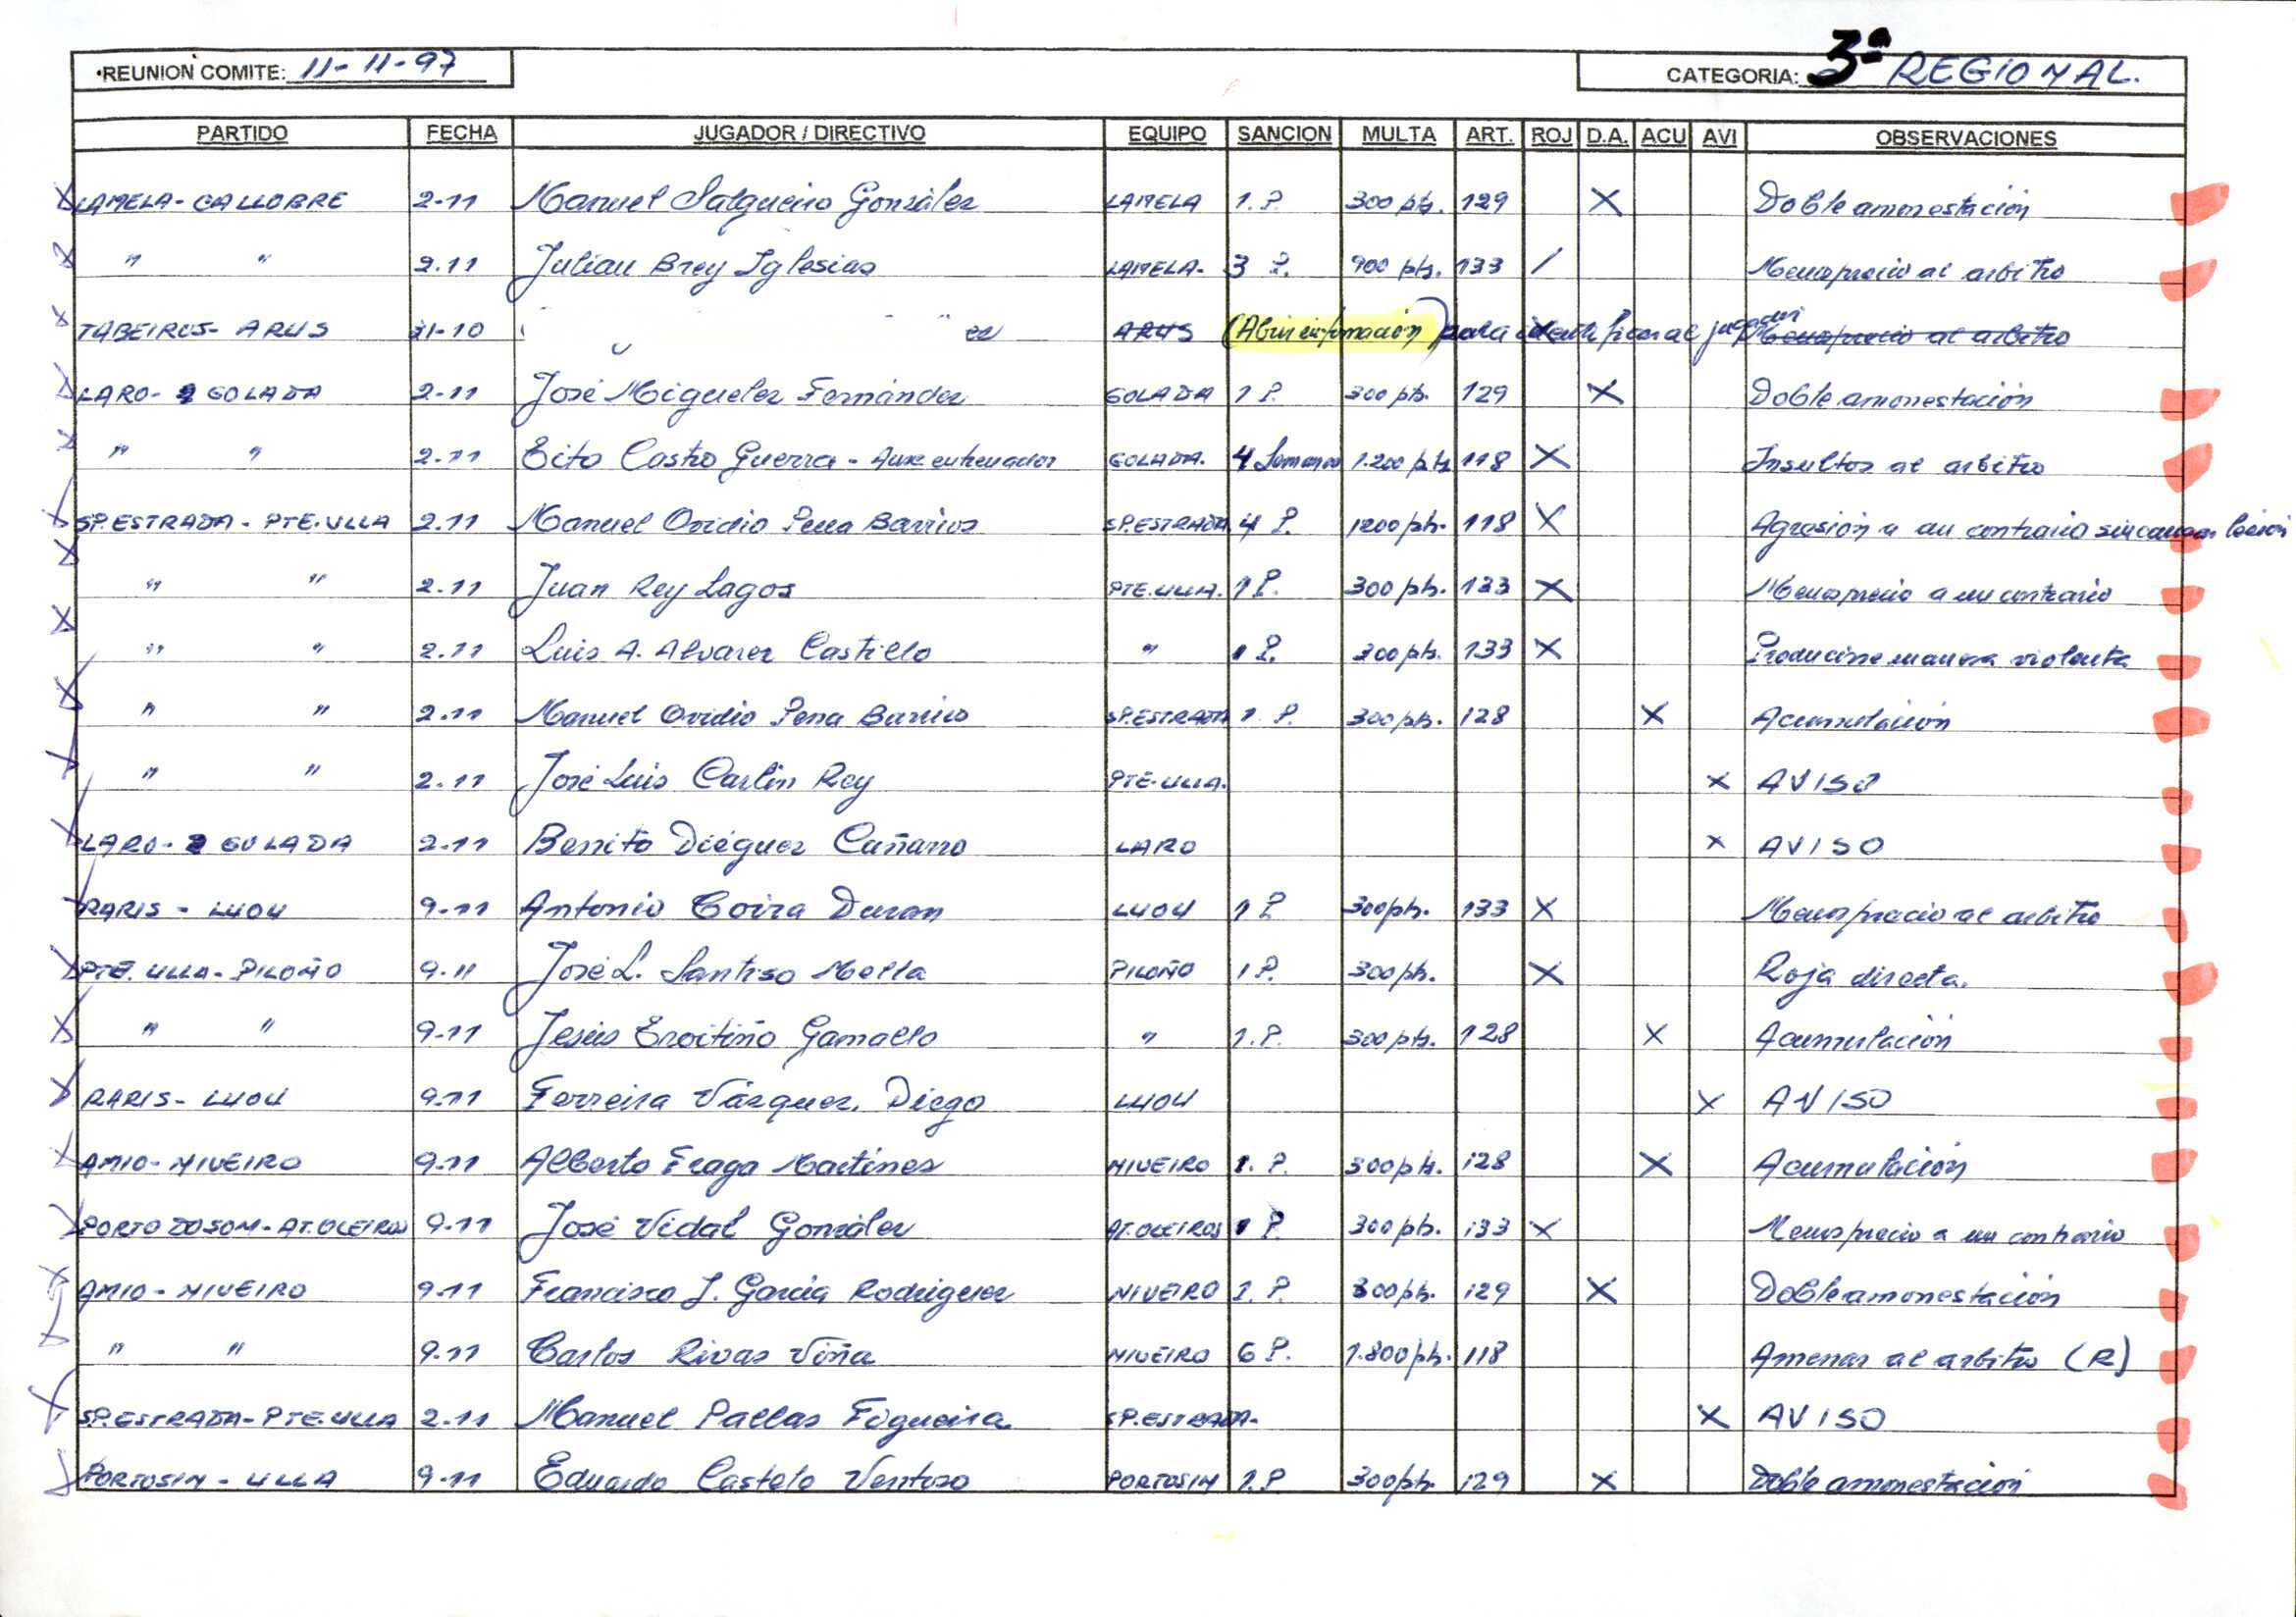 REUNION COMITE: 11-11-97 CATEGORIA: 3ª REGIONAL.
PARTIDO FECHA JUGADOR / DIRECTIVO EQUIPO SANCION MULTA ART. ROJ D.A. ACU AVI OBSERVACIONES
LAMELA - CALLOBRE 2-11 Manuel Salgueiro González LAMELA 1. P. 300 pts. 129 X Doble amonestación
" " 2.11 Julian Brey Iglesias LAMELA. 3 P. 900 pts. 133 / Menosprecio al arbitro
TABEIROS - ARUS 31-10 ez ARUS (Abrir información) para identificar al jugador Menosprecio al arbitro
LARO - GOLADA 2-11 José Miguelez Fernández GOLADA 1 P. 300 pts. 129 X Doble amonestación
" " 2.11 Tito Castro Guerra - Aux entrenador GOLADA. 4 Semanas 1.200 pts 118 X Insultos al arbitro
SP. ESTRADA - PTE. ULLA 2.11 Manuel Ovidio Pena Barrios SP. ESTRADA 4 P. 1200 pts. 118 X Agresión a un contrario sin causar lesión
" " 2.11 Juan Rey Lagos PTE. ULLA. 1 P. 300 pts. 133 X Menosprecio a un contrario
" " 2.11 Luis A. Alvarez Castillo " 1 P. 300 pts. 133 X Producirse manera violenta
" " 2.11 Manuel Ovidio Pena Barrios SP. ESTRADA 1. P. 300 pts. 128 X Acumulación
" " 2.11 José Luis Carlín Rey PTE. ULLA. X AVISO
LARO - GOLADA 2.11 Benito Diéguez Cañarro LARO X AVISO
RARIS - LUOU 9-11 Antonio Coira Duran LUOU 1 P 300 pts. 133 X Menosprecio al arbitro
PTE. ULLA - PILOÑO 9-11 José L. Santiso Mella PILOÑO 1 P. 300 pts. X Roja directa.
" " 9-11 Jesús Eroitiño Gamallo " 1. P. 300 pts. 128 X Acumulación
RARIS - LUOU 9.11 Ferreira Vázquez, Diego LUOU X AVISO
AMIO - NIVEIRO 9.11 Alberto Fraga Martínez NIVEIRO 1. P. 300 pts. 128 X Acumulación
PORTO DO SON - AT. OLEIROS 9-11 José Vidal González AT. OLEIROS 1 P. 300 pts. 133 X Menosprecio a un contrario
AMIO - NIVEIRO 9.11 Francisco J. García Rodríguez NIVEIRO 1. P. 300 pts. 129 X Doble amonestación
" " 9.11 Carlos Rivas Viña NIVEIRO 6 P. 1.800 pts. 118 Amenaz al arbitro (R)
SP. ESTRADA - PTE. ULLA 2.11 Manuel Pallas Figueira SP. ESTRADA. X AVISO
PORTOSIN - ULLA 9-11 Eduardo Castelo Ventoso PORTOSIN 1. P 300 pts. 129 X Doble amonestación